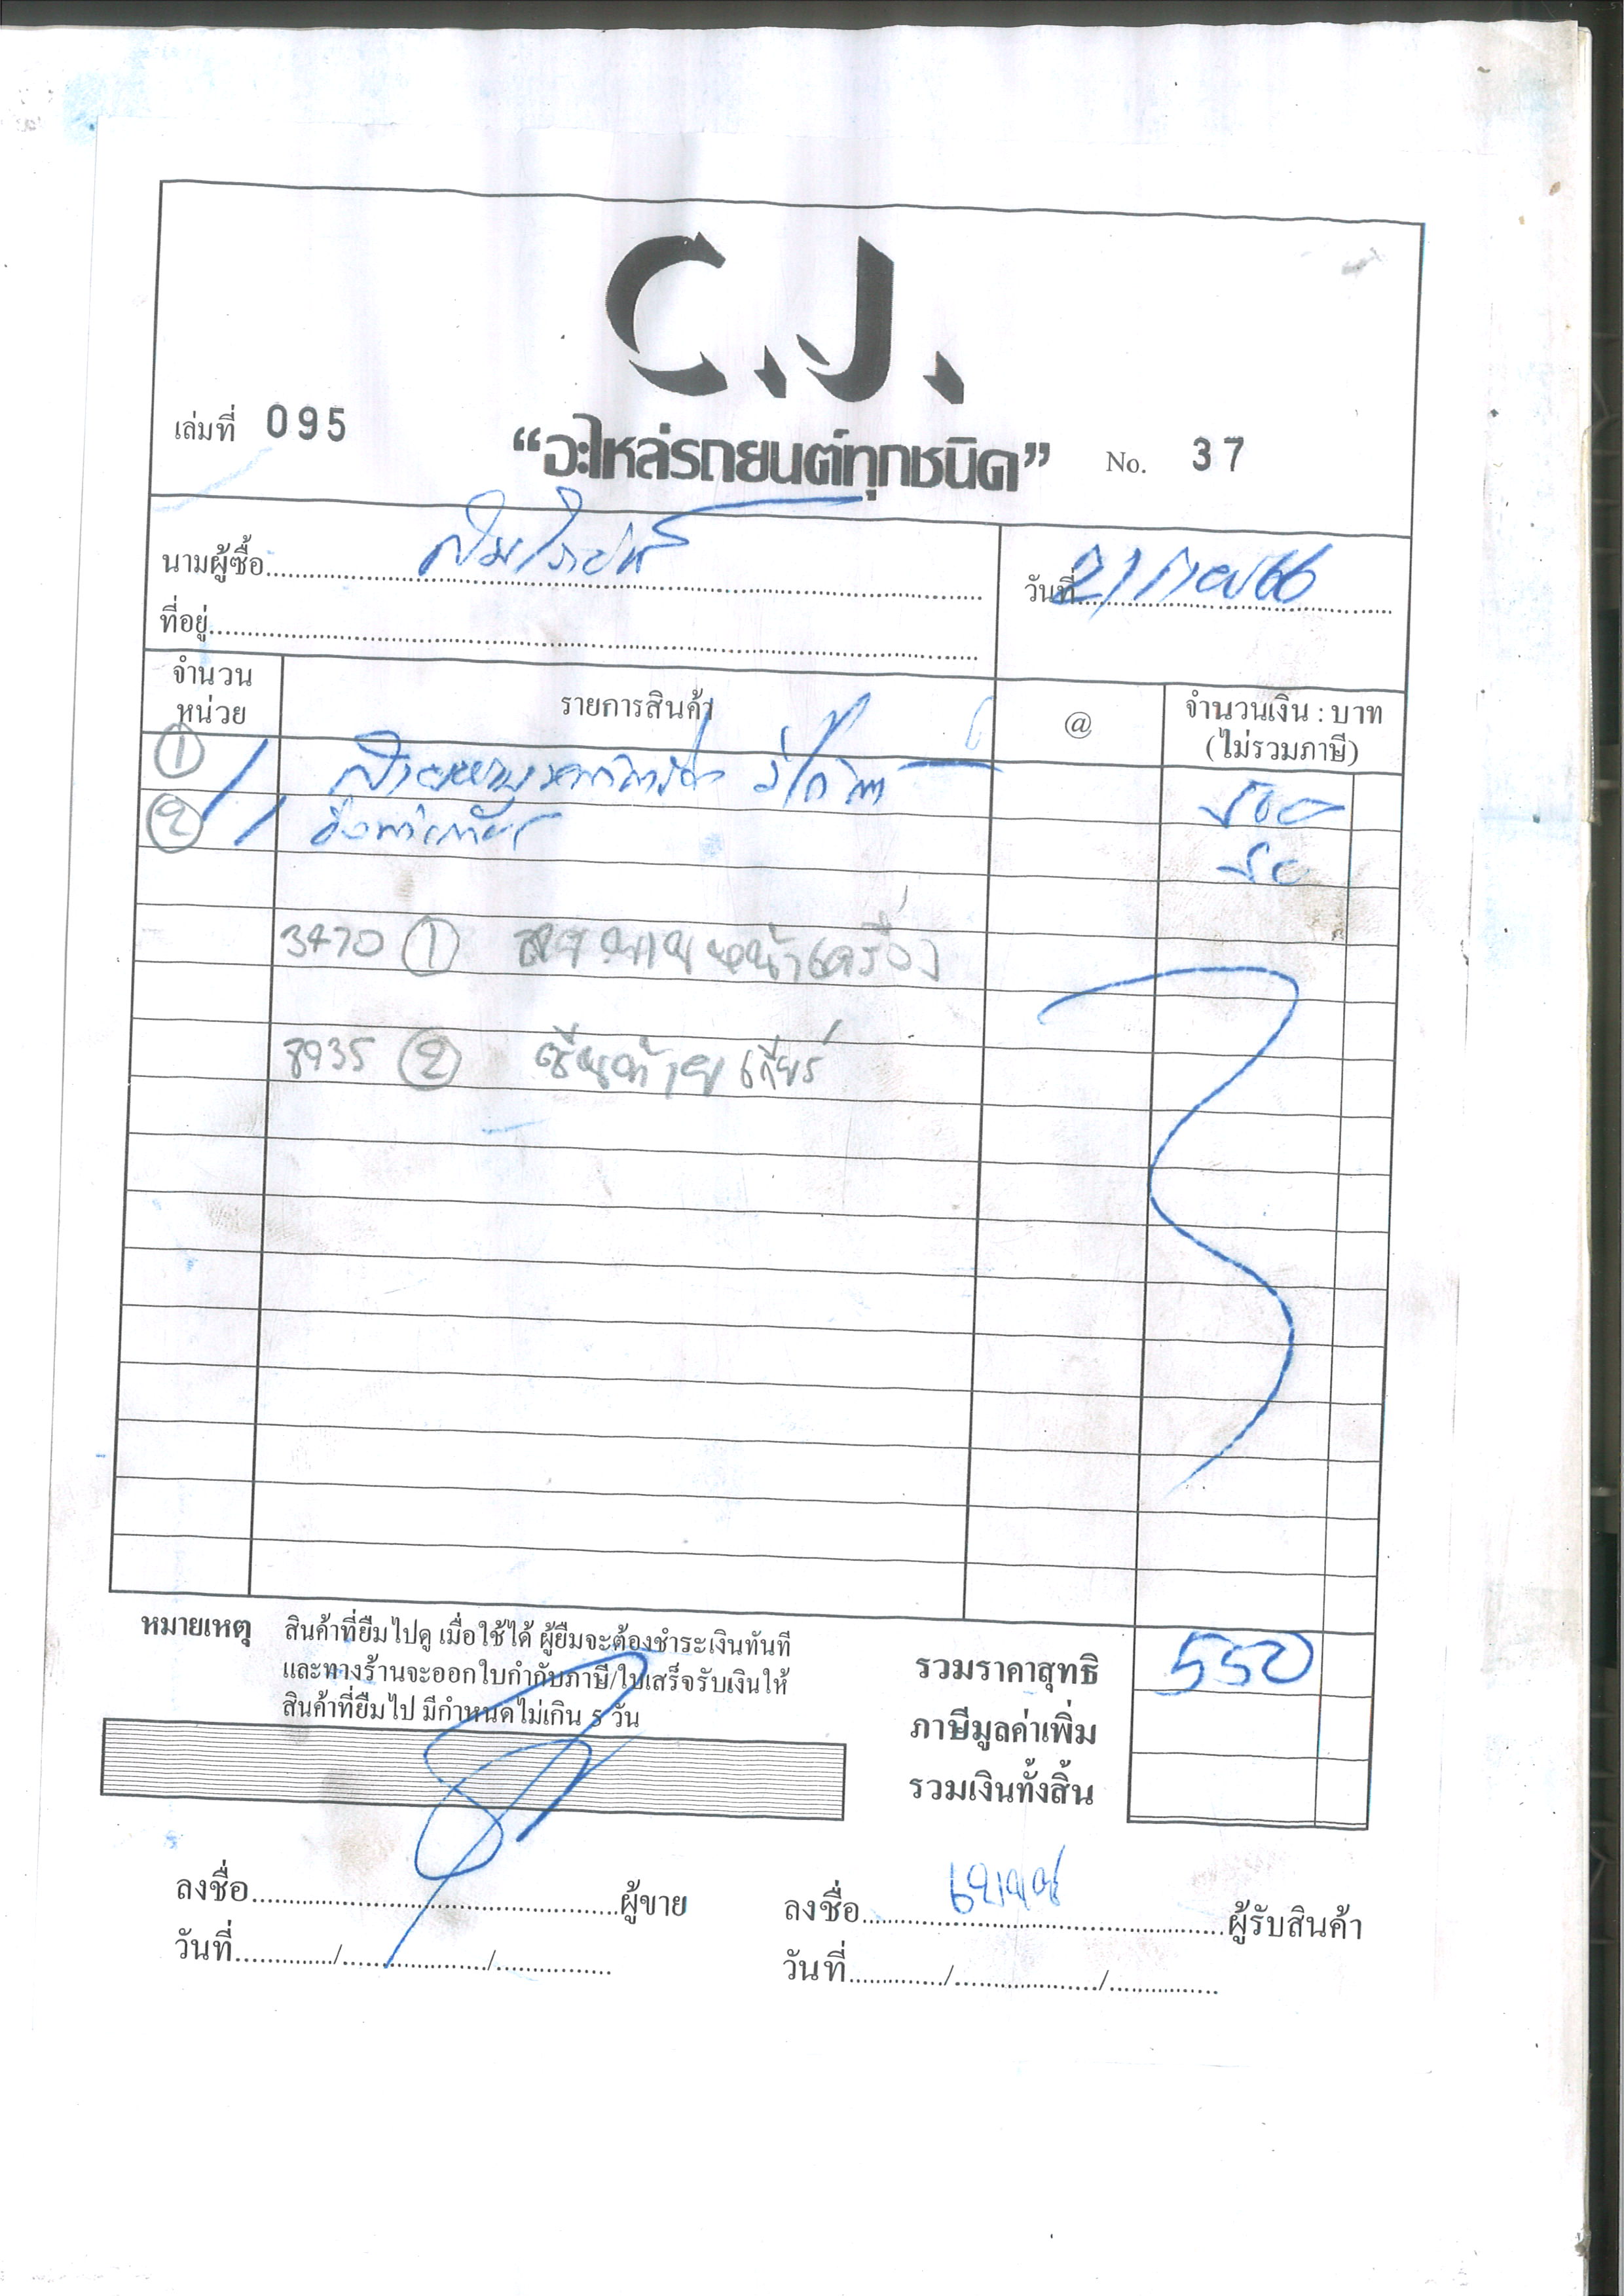 C.J.
เล่มที่ 095
“อะไหล่รถยนต์ทุกชนิด” No. 37
นามผู้ซื้อ
วันที่ 21 กย 66
ที่อยู่
จำนวน หน่วย รายการสินค้า @ จำนวนเงิน : บาท (ไม่รวมภาษี)
① 1 สายพานหน้าเครื่อง 500
② 1 50
3470 ① สายพานหน้าเครื่อง
8935 ② ซีลท้ายเกียร์
หมายเหตุ สินค้าที่ยืมไปดู เมื่อใช้ได้ ผู้ยืมจะต้องชำระเงินทันที
และทางร้านจะออกใบกำกับภาษี/ใบเสร็จรับเงินให้
สินค้าที่ยืมไป มีกำหนดไม่เกิน 5 วัน
รวมราคาสุทธิ 550
ภาษีมูลค่าเพิ่ม
รวมเงินทั้งสิ้น
ลงชื่อ ผู้ขาย
ลงชื่อ ผู้รับสินค้า
วันที่ / /
วันที่ / /